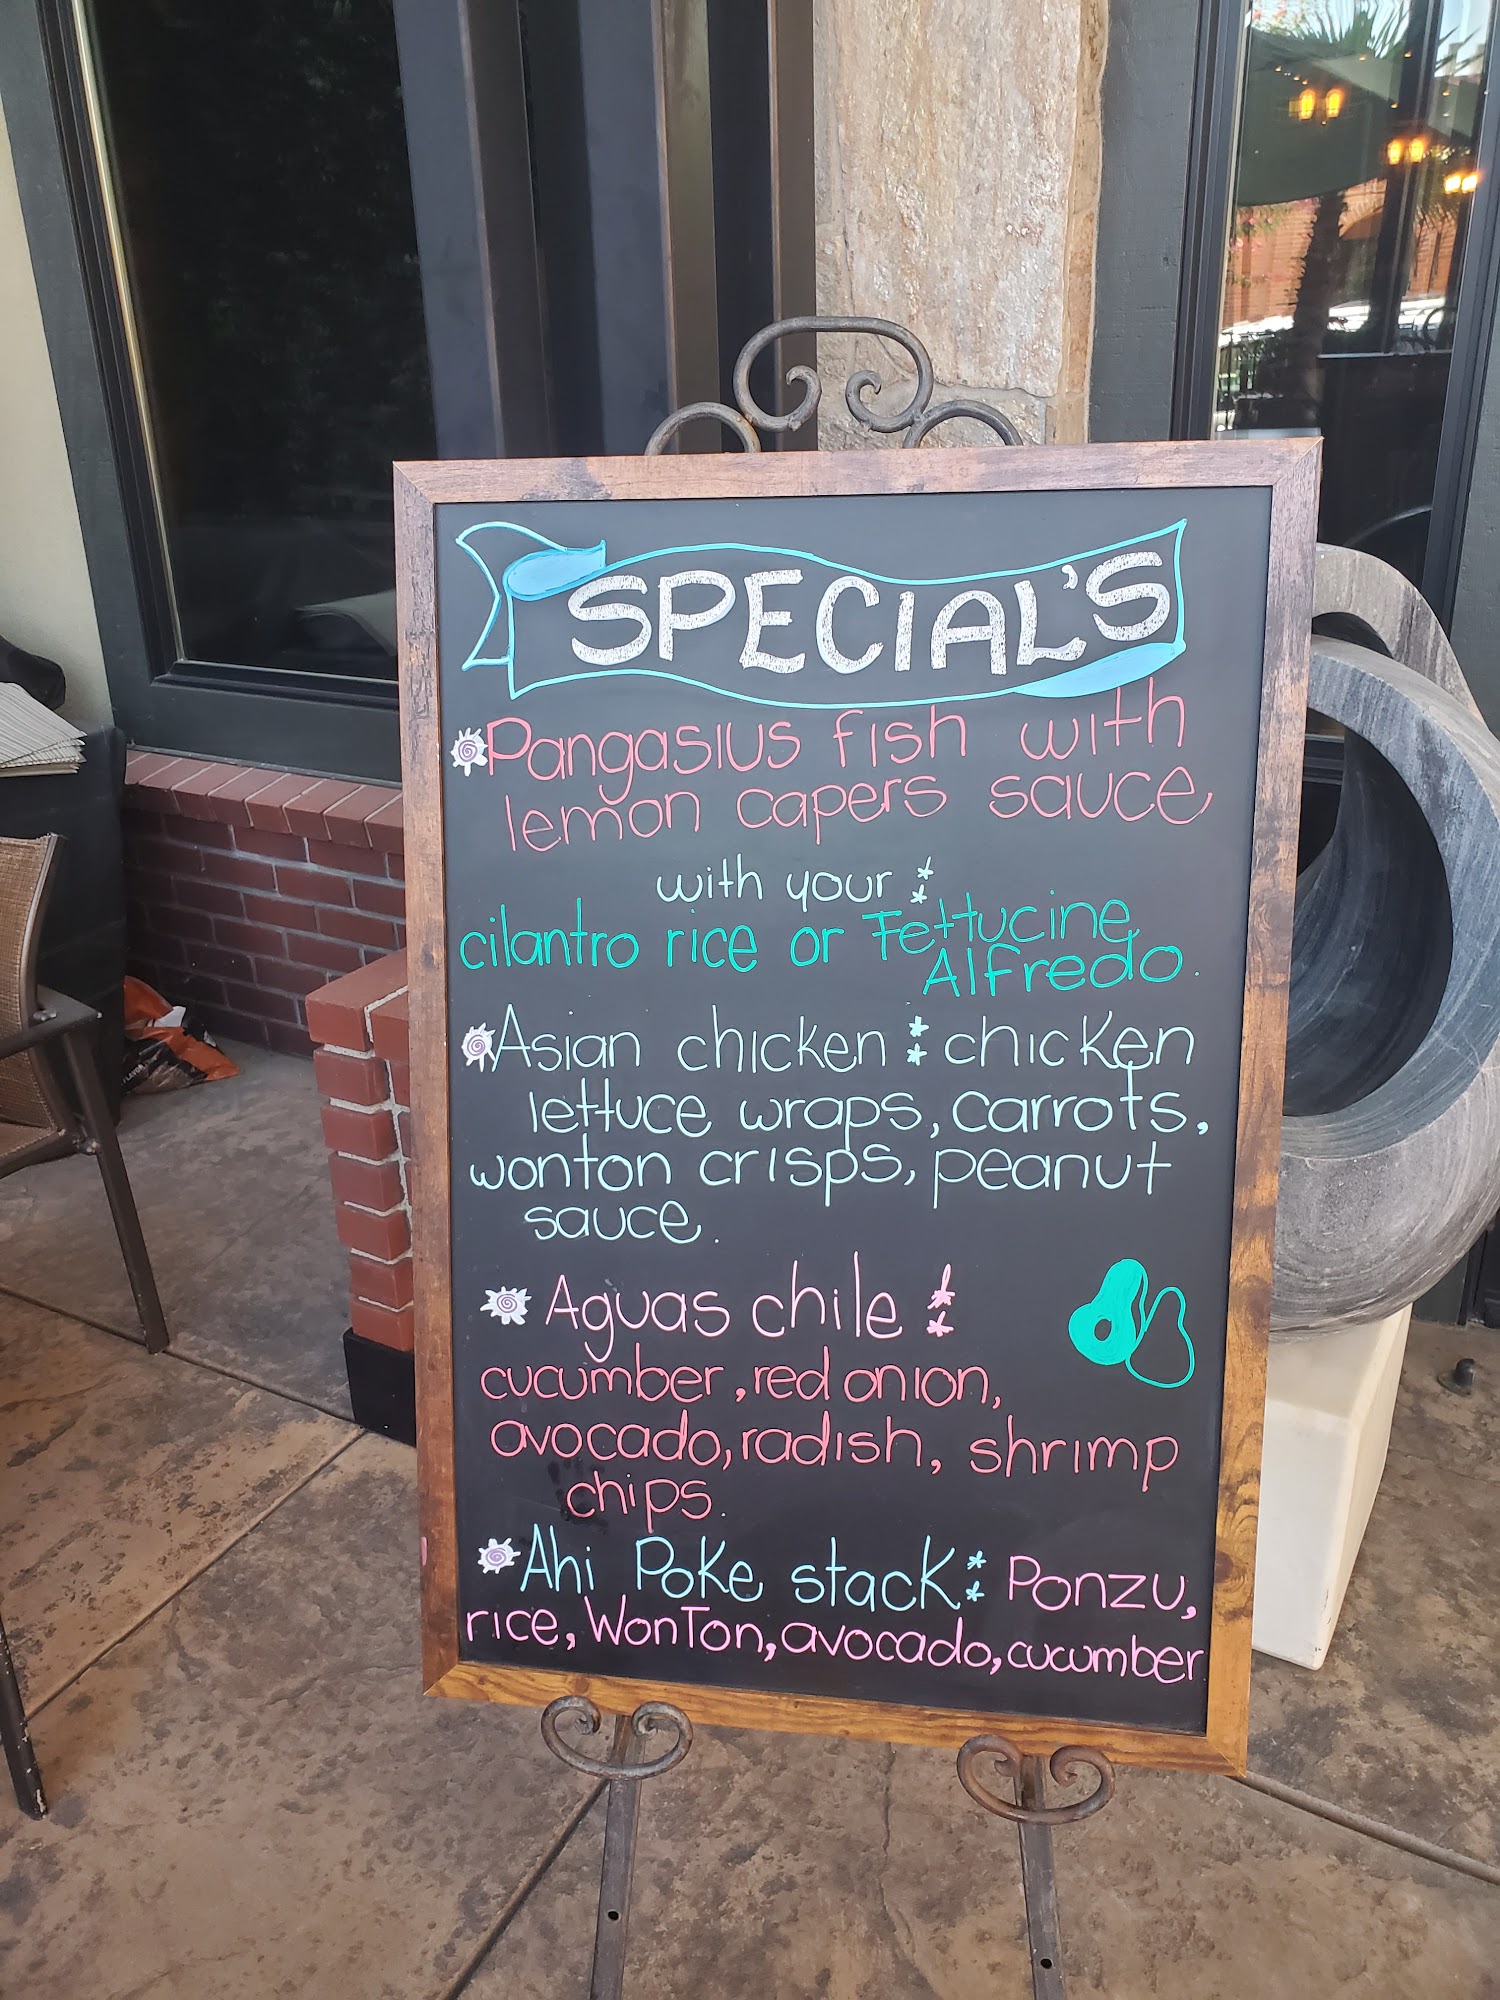 SPECIAL'S
Pangasius fish with
lemon capers sauce
with your :
cilantro rice or Fettucine
Alfredo.
Asian chicken : chicken
lettuce wraps, carrots,
wonton crisps, peanut
sauce.
Aguas chile :
cucumber, red onion,
avocado, radish, shrimp
chips.
Ahi Poke stack: Ponzu,
rice, WonTon, avocado, cucumber